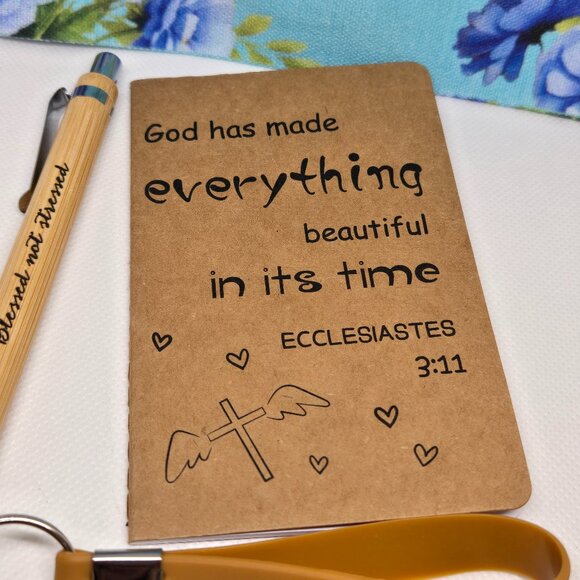 Blessed not stressed
God has made
everything
beautiful
in its time
ECCLESIASTES
3:11